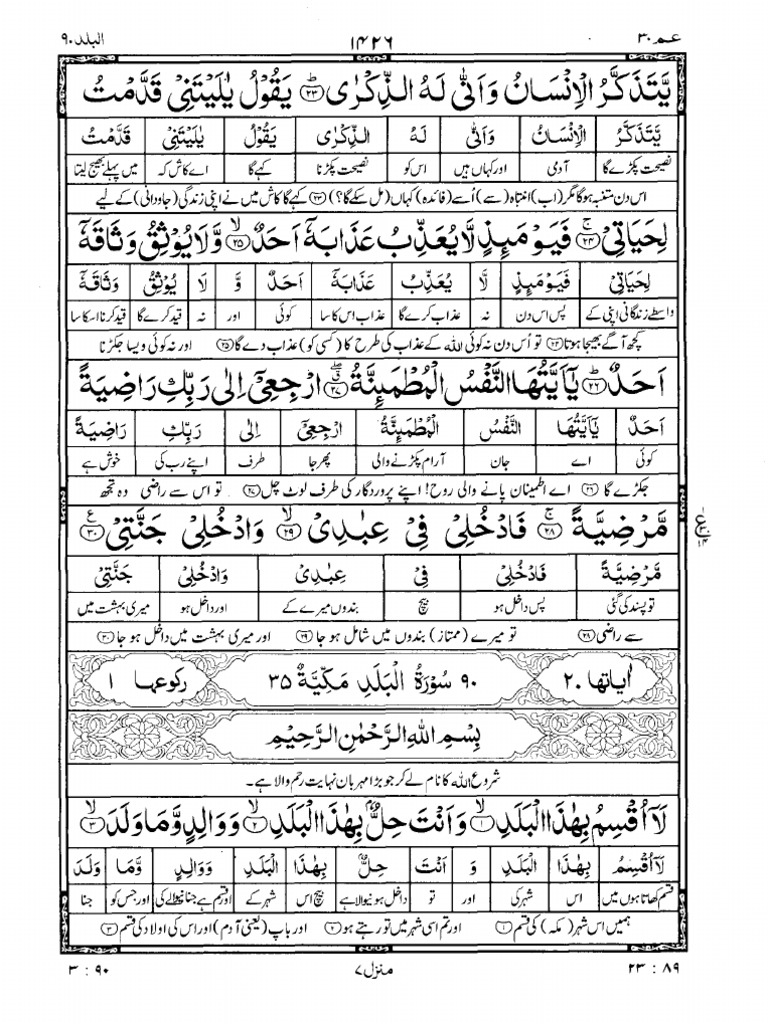 عـمـ ۳۰ ۱۴۲۶ البلد ۹۰
يَّتَذَكَّرُ الْاِنْسَانُ وَاَنّٰى لَهُ الذِّكْرٰى ؕ﴿۲۳﴾ يَقُوْلُ يٰلَيْتَنِىْ قَدَّمْتُ
يَّتَذَكَّرُ الْاِنْسَانُ وَاَنّٰى لَهُ الذِّكْرٰى يَقُوْلُ يٰلَيْتَنِىْ قَدَّمْتُ
نصیحت پکڑے گا آدمی اور کہاں ہیں اس کو نصیحت پکڑنا کہے گا اے کاش کہ میں پہلے بھیج لیتا
اس دن متنبہ ہو گا مگر (اب) انتباہ (سے) اُسے (فائدہ) کہاں (مل سکے گا؟) ﴿۲۳﴾ کہے گا کاش میں نے اپنی زندگی (جاودانی) کے لیے
لِحَيَاتِىْ ۚ﴿۲۴﴾ فَيَوْمَئِذٍ لَّا يُعَذِّبُ عَذَابَهٗۤ اَحَدٌ ۙ﴿۲۵﴾ وَّلَا يُوْثِقُ وَثَاقَهٗۤ
لِحَيَاتِىْ فَيَوْمَئِذٍ لَّا يُعَذِّبُ عَذَابَهٗۤ اَحَدٌ وَّ لَا يُوْثِقُ وَثَاقَهٗۤ
واسطے زندگانی اپنی کے پس اس دن نہ عذاب کرے گا عذاب اس کا سا کوئی اور نہ قید کرے گا قید کرنا اسکا سا
کچھ آگے بھیجا ہوتا ﴿۲۴﴾ تو اُس دن نہ کوئی اللہ کے عذاب کی طرح کا (کسی کو) عذاب دے گا ﴿۲۵﴾ اور نہ کوئی ویسا جکڑنا
اَحَدٌ ؕ﴿۲۶﴾ يٰۤاَيَّتُهَا النَّفْسُ الْمُطْمَئِنَّةُ ﴿۲۷﴾ ارْجِعِىْۤ اِلٰى رَبِّكِ رَاضِيَةً
اَحَدٌ يٰۤاَيَّتُهَا النَّفْسُ الْمُطْمَئِنَّةُ ارْجِعِىْۤ اِلٰى رَبِّكِ رَاضِيَةً
کوئی اے جان آرام پکڑنے والی پھر جا طرف اپنے رب کی خوش ہے
جکڑے گا ﴿۲۶﴾ اے اطمینان پانے والی روح! اپنے پروردگار کی طرف لوٹ چل ﴿۲۷﴾ تو اس سے راضی وہ تجھ
مَّرْضِيَّةً ۚ﴿۲۸﴾ فَادْخُلِىْ فِىْ عِبٰدِىْ ۙ﴿۲۹﴾ وَادْخُلِىْ جَنَّتِىْ ﴿۳۰﴾ ع
مَّرْضِيَّةً فَادْخُلِىْ فِىْ عِبٰدِىْ وَادْخُلِىْ جَنَّتِىْ
تو پسند کی گئی پس داخل ہو بیچ بندوں میرے کے اور داخل ہو میری بہشت میں
سے راضی ﴿۲۸﴾ تو میرے (ممتاز) بندوں میں شامل ہو جا ﴿۲۹﴾ اور میری بہشت میں داخل ہو جا ﴿۳۰﴾
اٰياتها ۲۰ ۹۰ سُوْرَةُ الْبَلَدِ مَكِّيَّةٌ ۳۵ ركوعها ۱
بِسْمِ اللهِ الرَّحْمٰنِ الرَّحِيْمِ
شروع اللہ کا نام لے کر جو بڑا مہربان نہایت رحم والا ہے۔
لَاۤ اُقْسِمُ بِهٰذَا الْبَلَدِ ۙ﴿۱﴾ وَاَنْتَ حِلٌّۢ بِهٰذَا الْبَلَدِ ۙ﴿۲﴾ وَوَالِدٍ وَّمَا وَلَدَ ۙ﴿۳﴾
لَاۤ اُقْسِمُ بِهٰذَا الْبَلَدِ وَ اَنْتَ حِلٌّۢ بِهٰذَا الْبَلَدِ وَوَالِدٍ وَّمَا وَلَدَ
قسم کھاتا ہوں میں اس شہر کی اور تو داخل ہونیوالا ہے بیچ اس شہر کے اور قسم ہے جننا نیوالے کی اور جس کو جنا
ہمیں اس شہر (مکہ) کی قسم ﴿۱﴾ اور تم اسی شہر میں تو رہتے ہو ﴿۲﴾ اور باپ (یعنی آدم) اور اس کی اولاد کی قسم ﴿۳﴾
۸۹ : ۲۳ منزل ۷ ۹۰ : ۳